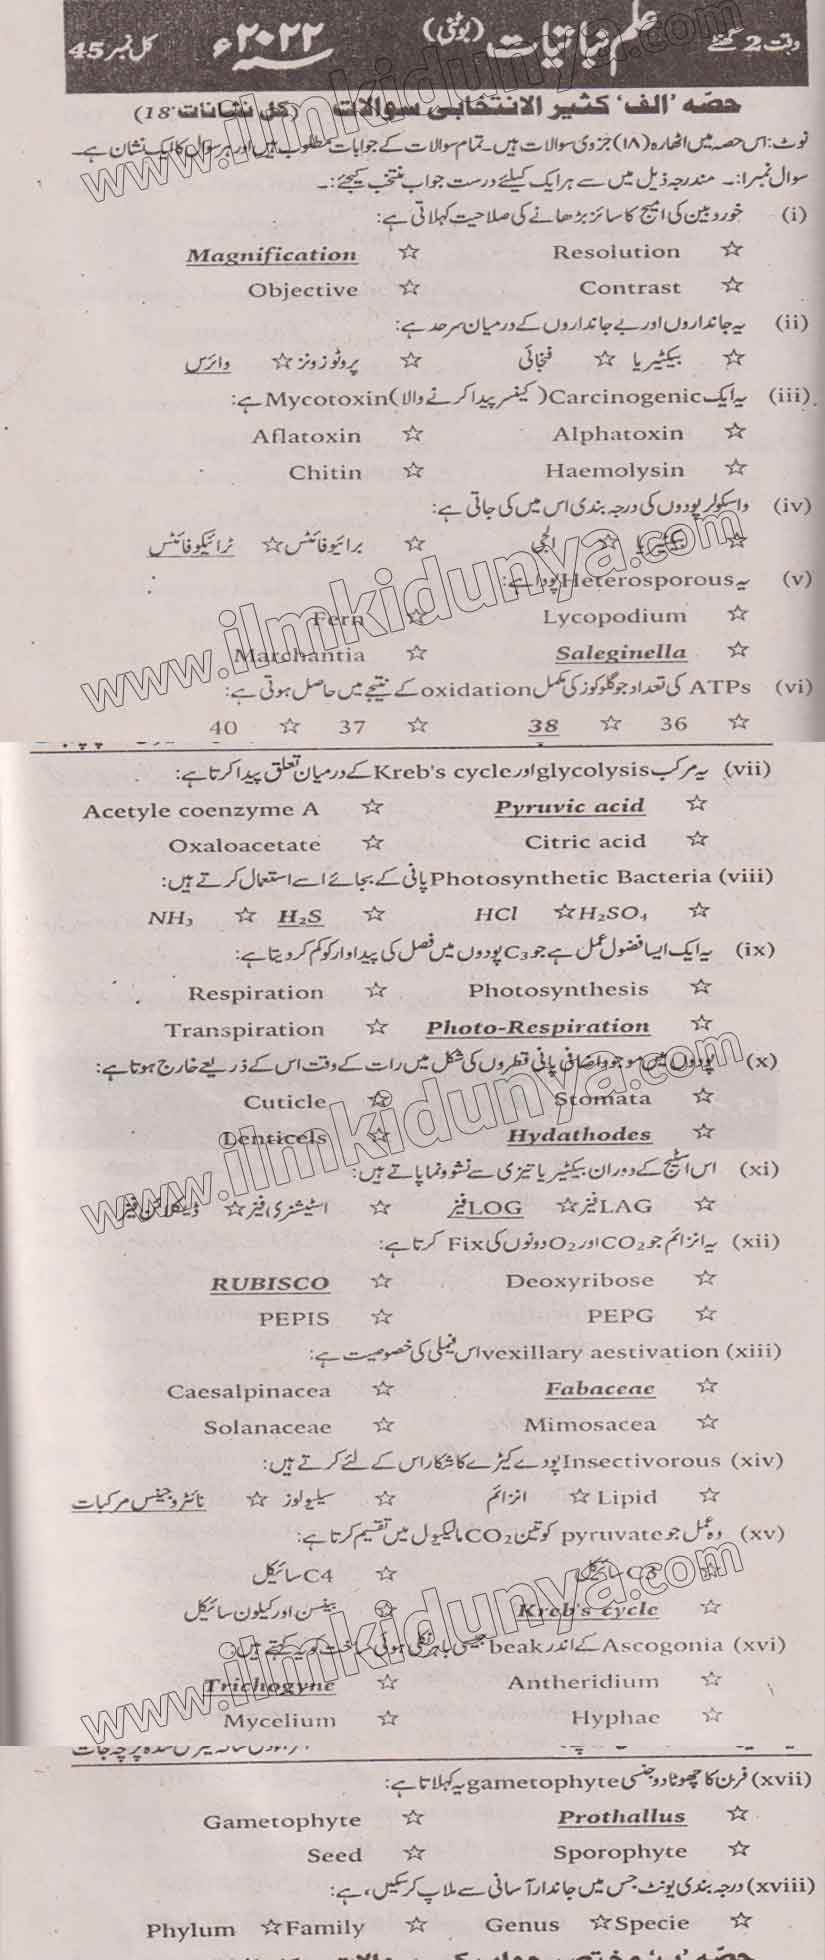 وقت 2 گھنٹے علم نباتیات (بوٹنی) سنہ ۲۰۲۲ء کل نمبر 45
حصّہ 'الف' کثیر الانتخابی سوالات (کل نشانات 18)
نوٹ: اس حصہ میں اٹھارہ (۱۸) جزوی سوالات ہیں۔ تمام سوالات کے جوابات مطلوب ہیں اور ہر سوال کا ایک نشان ہے۔
سوال نمبر ا:۔ مندرجہ ذیل میں سے ہر ایک کیلئے درست جواب منتخب کیجئے:۔
(i) خوردبین کی امیج کا سائز بڑھانے کی صلاحیت کہلاتی ہے:
☆ Resolution ☆ Magnification
☆ Contrast ☆ Objective
(ii) یہ جانداروں اور بے جانداروں کے درمیان سرحد ہے:
☆ بیکٹیریا ☆ فنجائی ☆ پروٹوزونز ☆ وائرس
(iii) یہ ایک Carcinogenic (کینسر پیدا کرنے والا) Mycotoxin ہے:
☆ Alphatoxin ☆ Aflatoxin
☆ Haemolysin ☆ Chitin
(iv) واسکولر پودوں کی درجہ بندی اس میں کی جاتی ہے:
☆ بیکٹیریا ☆ الجی ☆ برائیوفائٹس ☆ ٹرائیکوفائٹس
(v) یہ Heterosporous پودا ہے:
☆ Lycopodium ☆ Fern
☆ Saleginella ☆ Marchantia
(vi) ATPs کی تعداد جو گلوکوز کی مکمل oxidation کے نتیجے میں حاصل ہوتی ہے:
☆ 36 ☆ 38 ☆ 37 ☆ 40
(vii) یہ مرکب glycolysis اور Kreb's cycle کے درمیان تعلق پیدا کرتا ہے:
☆ Pyruvic acid ☆ Acetyle coenzyme A
☆ Citric acid ☆ Oxaloacetate
(viii) Photosynthetic Bacteria پانی کے بجائے اسے استعمال کرتے ہیں:
☆ H₂SO₄ ☆ HCl ☆ H₂S ☆ NH₃
(ix) یہ ایک ایسا فضول عمل ہے جو C₃ پودوں میں فصل کی پیداوار کو کم کر دیتا ہے:
☆ Photosynthesis ☆ Respiration
☆ Photo-Respiration ☆ Transpiration
(x) پودوں میں موجود اضافی پانی قطروں کی شکل میں رات کے وقت اس کے ذریعے خارج ہوتا ہے:
☆ Stomata ☆ Cuticle
☆ Hydathodes ☆ Lenticels
(xi) اس اسٹیج کے دوران بیکٹیریا تیزی سے نشوونما پاتے ہیں:
☆ LAG فیز ☆ LOG فیز ☆ اسٹیشنری فیز ☆ ڈیکلائن فیز
(xii) یہ انزائم جو CO₂ اور O₂ دونوں کی Fix کرتا ہے:
☆ Deoxyribose ☆ RUBISCO
☆ PEPG ☆ PEPIS
(xiii) vexillary aestivation اس فیملی کی خصوصیت ہے:
☆ Fabaceae ☆ Caesalpinacea
☆ Mimosacea ☆ Solanaceae
(xiv) Insectivorous پودے کیڑے کا شکار اس کے لئے کرتے ہیں:
☆ Lipid ☆ انزائم ☆ سیلیولوز ☆ نائٹروجینس مرکبات
(xv) وہ عمل جو pyruvate کو تین CO₂ مالیکیول میں تقسیم کرتا ہے:
☆ C3 سائیکل ☆ C4 سائیکل
☆ Kreb's cycle ☆ بینسن اور کیلون سائیکل
(xvi) Ascogonia کے اندر beak جیسی باہر نکلی ہوئی ساخت کو یہ کہتے ہیں:
☆ Antheridium ☆ Trichogyne
☆ Hyphae ☆ Mycelium
(xvii) فرن کا چھوٹا دو جنسی gametophyte یہ کہلاتا ہے:
☆ Prothallus ☆ Gametophyte
☆ Sporophyte ☆ Seed
(xviii) درجہ بندی یونٹ جس میں جاندار آسانی سے ملاپ کر سکیں، ہے:
☆ Specie ☆ Genus ☆ Family ☆ Phylum
www.ilmkidunya.com
www.ilmkidunya.com
www.ilmkidunya.com
www.ilmkidunya.com